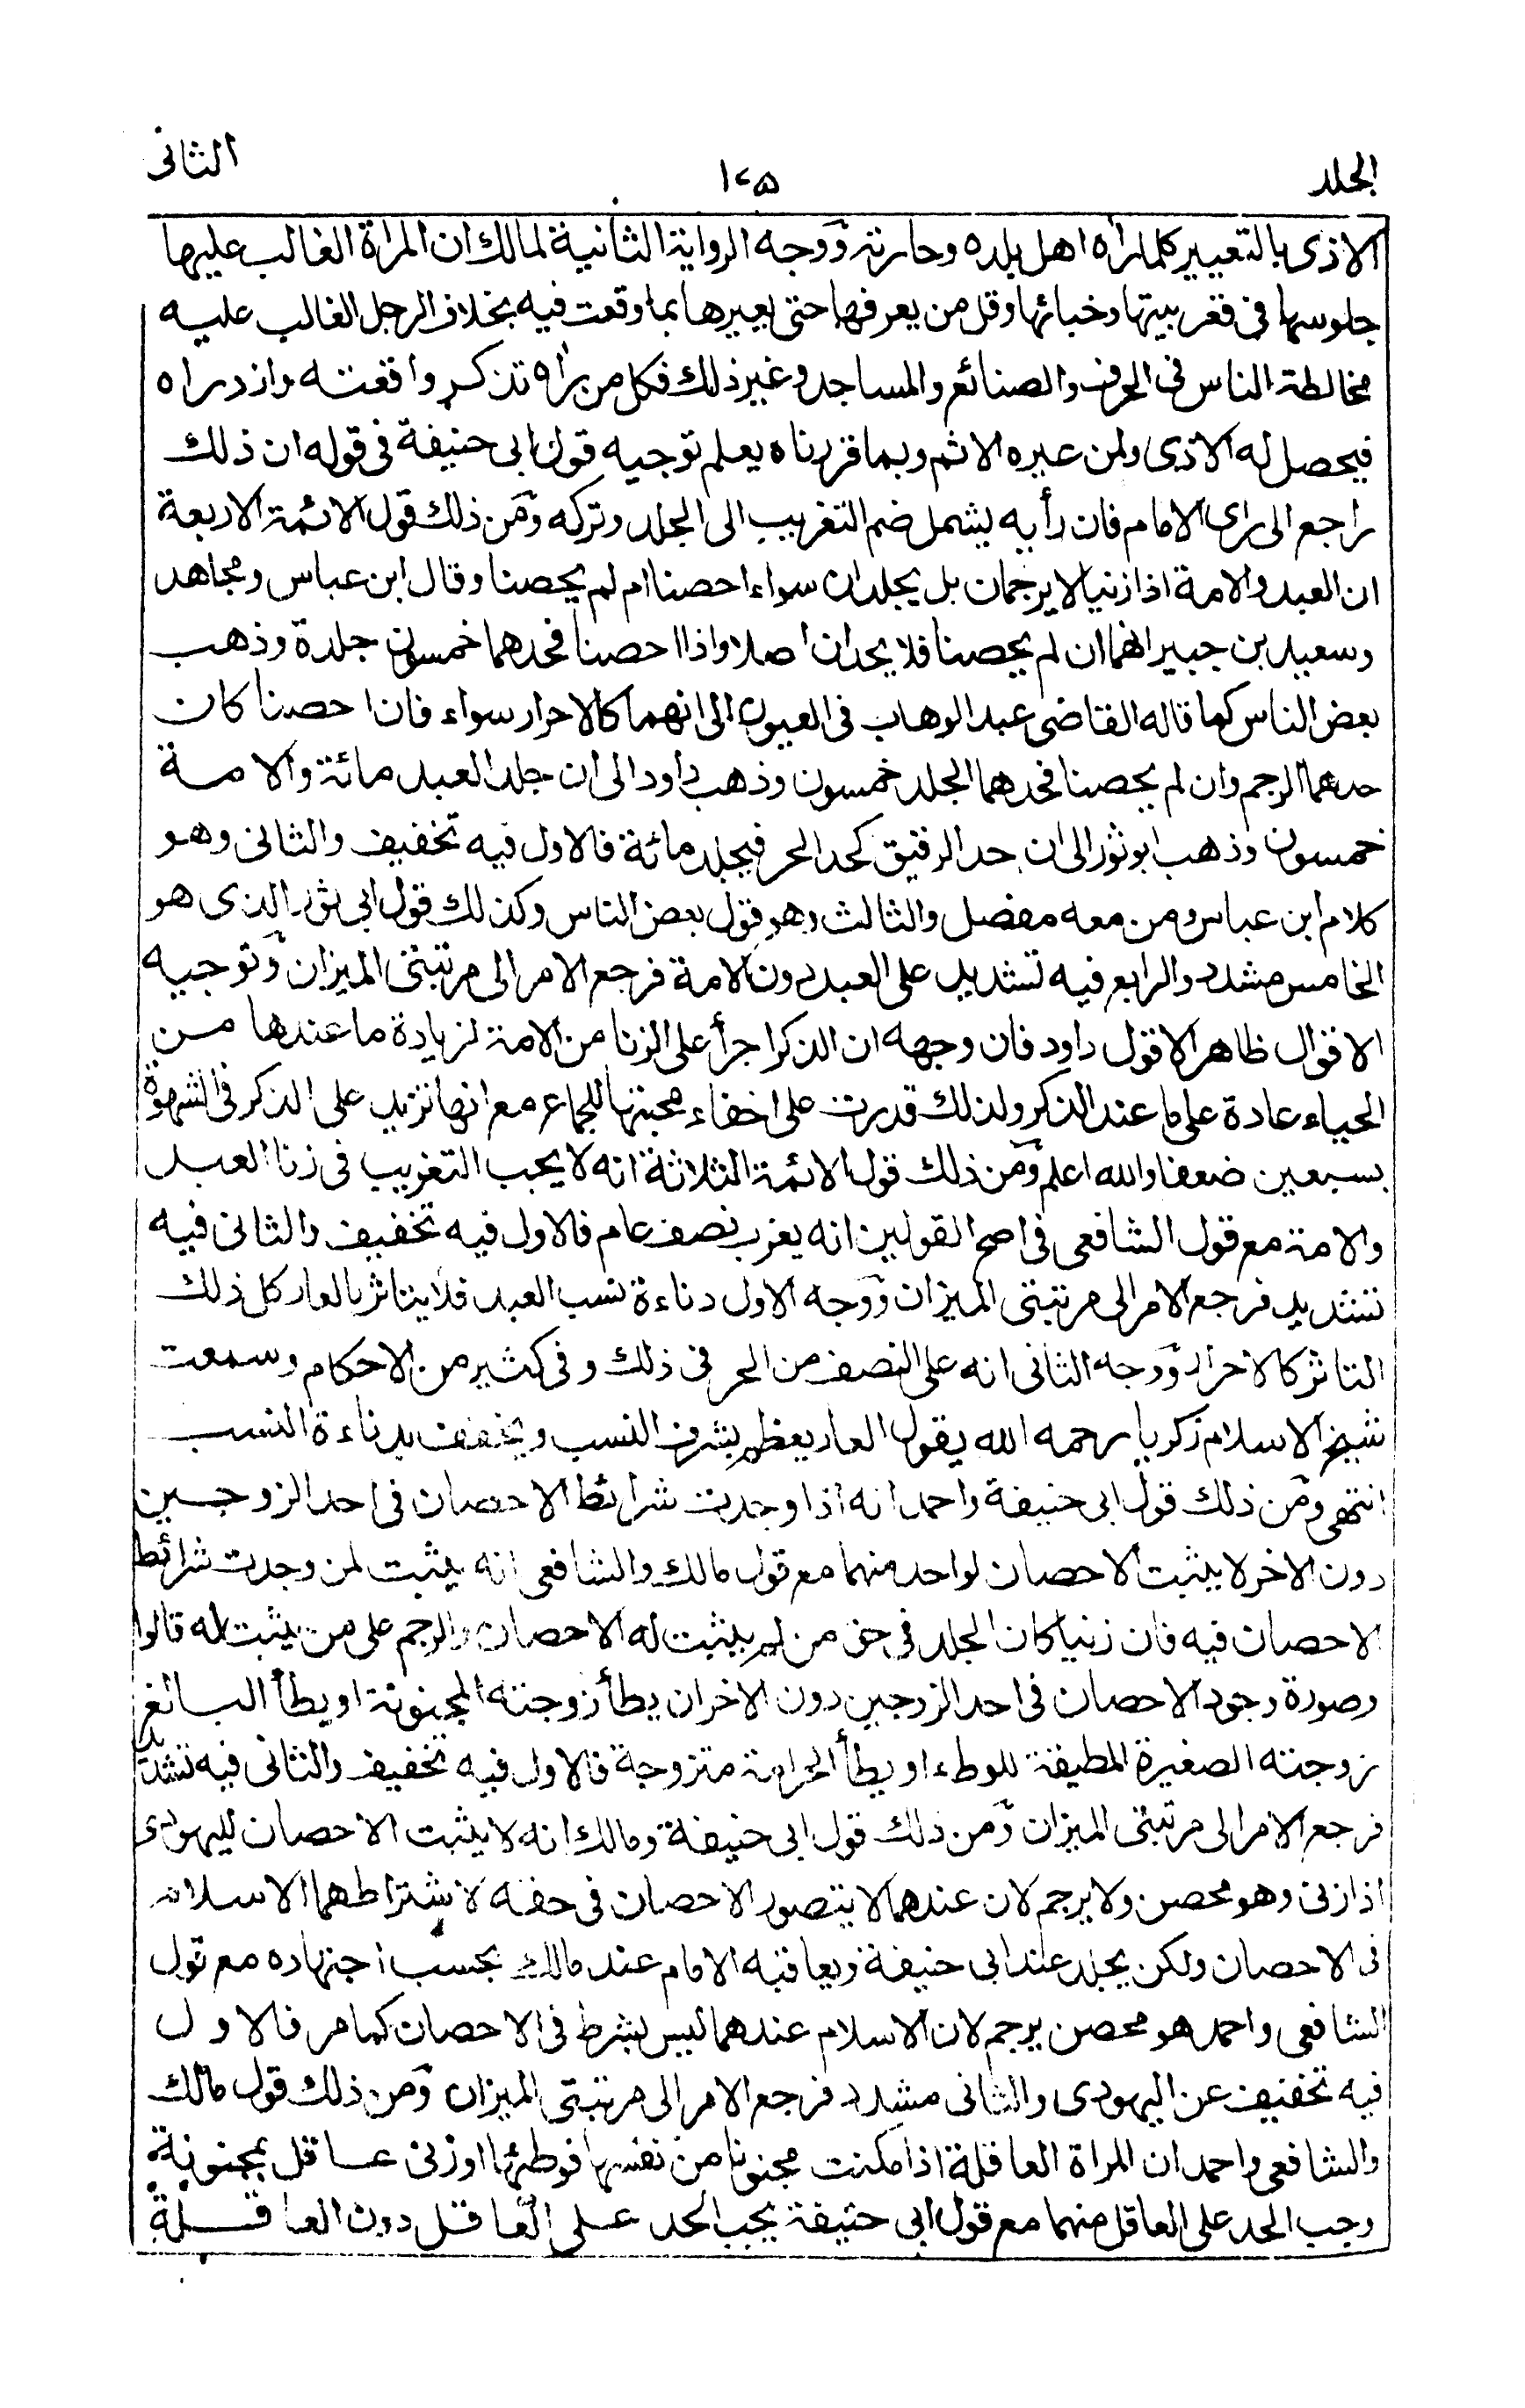 الجلد ١٢٥ الثانى
الاذى بالتعيير كلما رأه اهل بلده وحارته ووجه الرواية الثانية لمالك ان المراة الغالب عليها
جلوسها فى قعر بيتها وخبائها وقل من يعرفها حتى يعيرها بما وقعت فيه بخلاف الرجل الغالب عليه
مخالطة الناس فى الحرف والصنائع والمساجد وغير ذلك فكل من يراه تذكر واقعته وازدراه
فيحصل له الاذى ولمن عيره الاثم وبما قررناه يعلم توجيه قول ابى حنيفة فى قوله ان ذلك
راجع الى راى الامام فان رأيه يشمل ضم التغريب الى الجلد وتركه ومن ذلك قول الائمة الاربعة
ان العبد والامة اذا زنيا لا يرجمان بل يجلدان سواء احصنا ام لم يحصنا وقال ابن عباس ومجاهد
وسعيد بن جبير انهما ان لم يحصنا فلا يحدان اصلا واذا احصنا فحدهما خمسون جلدة وذهب
بعض الناس كما قاله القاضى عبد الوهاب فى العيون الى انهما كالاحرار سواء فان احصنا كان
حدهما الرجم وان لم يحصنا فحدهما الجلد خمسون وذهب داود الى ان جلد العبد مائة والامة
خمسون وذهب ابو ثور الى ان حد الرقيق كحد الحر فيجلد مائة فالاول فيه تخفيف والثانى وهو
كلام ابن عباس ومن معه مفصل والثالث وهو قول بعض الناس وكذلك قول ابى ثور الذى هو
الخامس مشدد والرابع فيه تشديد على العبد دون الامة فرجع الامر الى مرتبتى الميزان وتوجيه
الاقوال ظاهر الا قول داود فان وجهه ان الذكر اجرأ على الزنا من الامة لزيادة ما عندها من
الحياء عادة على ما عند الذكر ولذلك قدرت على اخفاء محبتها للجماع مع انها تزيد على الذكر فى الشهوة
بسبعين ضعفا والله اعلم ومن ذلك قول الائمة الثلاثة انه لا يجب التغريب فى زنا العبد
والامة مع قول الشافعى فى اصح القولين انه يغرب نصف عام فالاول فيه تخفيف والثانى فيه
تشديد فرجع الامر الى مرتبتى الميزان ووجه الاول دناءة نسب العبد فلا يتاثر بالعار كل ذلك
التاثر كالاحرار ووجه الثانى انه على النصف من الحر فى ذلك وفى كثير من الاحكام وسمعت
شيخ الاسلام زكريا رحمه الله يقول العار يعظم بشرف النسب ويخفف بدناءة النسب
انتهى ومن ذلك قول ابى حنيفة واحمد انه اذا وجدت شرائط الاحصان فى احد الزوجين
دون الاخر لا يثبت الاحصان لواحد منهما مع قول مالك والشافعى انه يثبت لمن وجدت شرائط
الاحصان فيه فان زنيا كان الجلد فى حق من لم يثبت له الاحصان والرجم على من يثبت له قالوا
وصورة وجود الاحصان فى احد الزوجين دون الاخر ان يطأ زوجته المجنونة او يطأ البالغ
زوجته الصغيرة المطيقة للوطء او يطأ الحر امة متزوجة فالاول فيه تخفيف والثانى فيه تشديد
فرجع الامر الى مرتبتى الميزان ومن ذلك قول ابى حنيفة ومالك انه لا يثبت الاحصان لليهودى
اذا زنى وهو محصن ولا يرجم لان عندهما لا يتصور الاحصان فى حقه لاشتراطهما الاسلام
فى الاحصان ولكن يجلد عند ابى حنيفة ويعاقبه الامام عند مالك بحسب اجتهاده مع قول
الشافعى واحمد هو محصن يرجم لان الاسلام عندهما ليس بشرط فى الاحصان كما مر فالاول
فيه تخفيف عن اليهودى والثانى مشدد فرجع الامر الى مرتبتى الميزان ومن ذلك قول مالك
والشافعى واحمد ان المراة العاقلة اذا مكنت مجنونا من نفسها فوطئها او زنى عاقل بمجنونة
وجب الحد على العاقل منهما مع قول ابى حنيفة يجب الحد على العاقل دون العاقلة